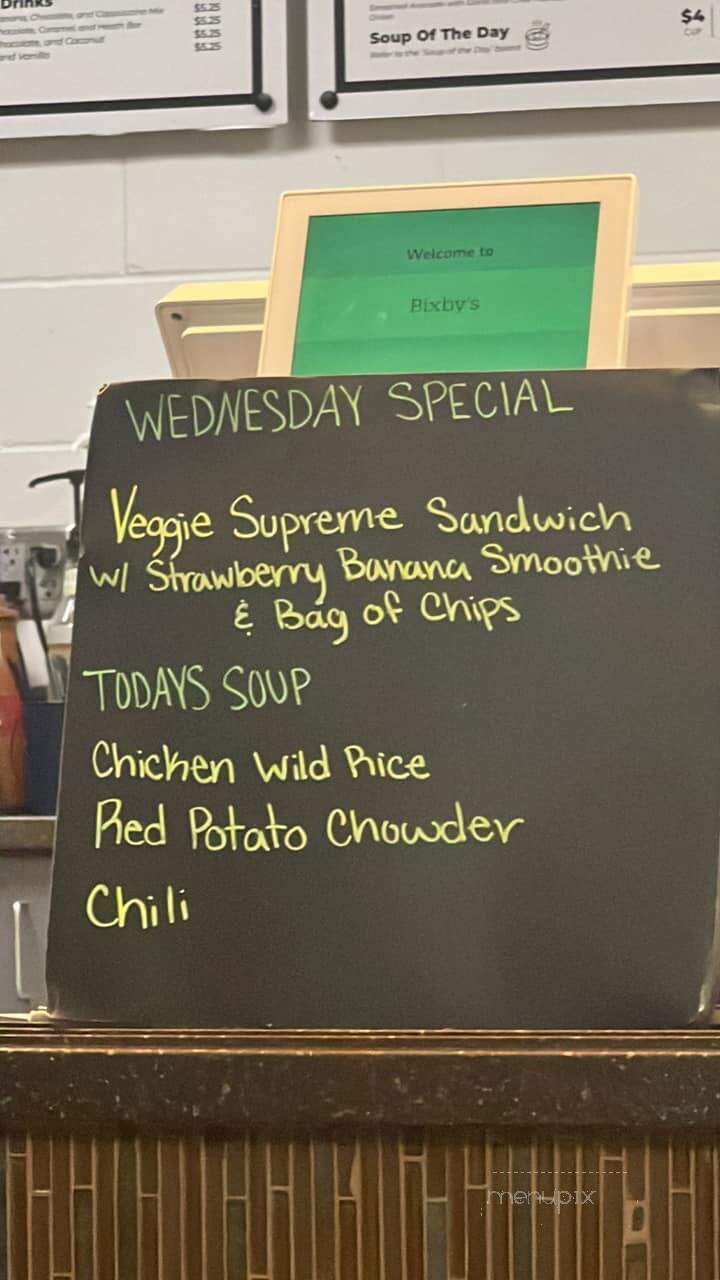 Drinks
$5.25
$5.25
and Heath Bar
$5.25
and Coconut
$5.25
and Vanilla
Soup Of The Day
$4
CUP
Refer to the 'Soup of the Day' board
Welcome to
Bixby's
WEDNESDAY SPECIAL
Veggie Supreme Sandwich
w/ Strawberry Banana Smoothie
& Bag of Chips
TODAYS SOUP
Chicken Wild Rice
Red Potato Chowder
Chili
menupix